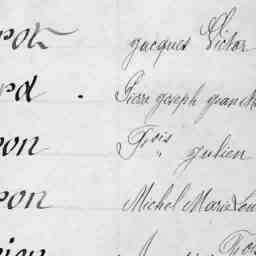 rot Jacques Victor
rd . Pierre Joseph Jean M
on Frois " Julien
eon Michel Marie Lou
Frois